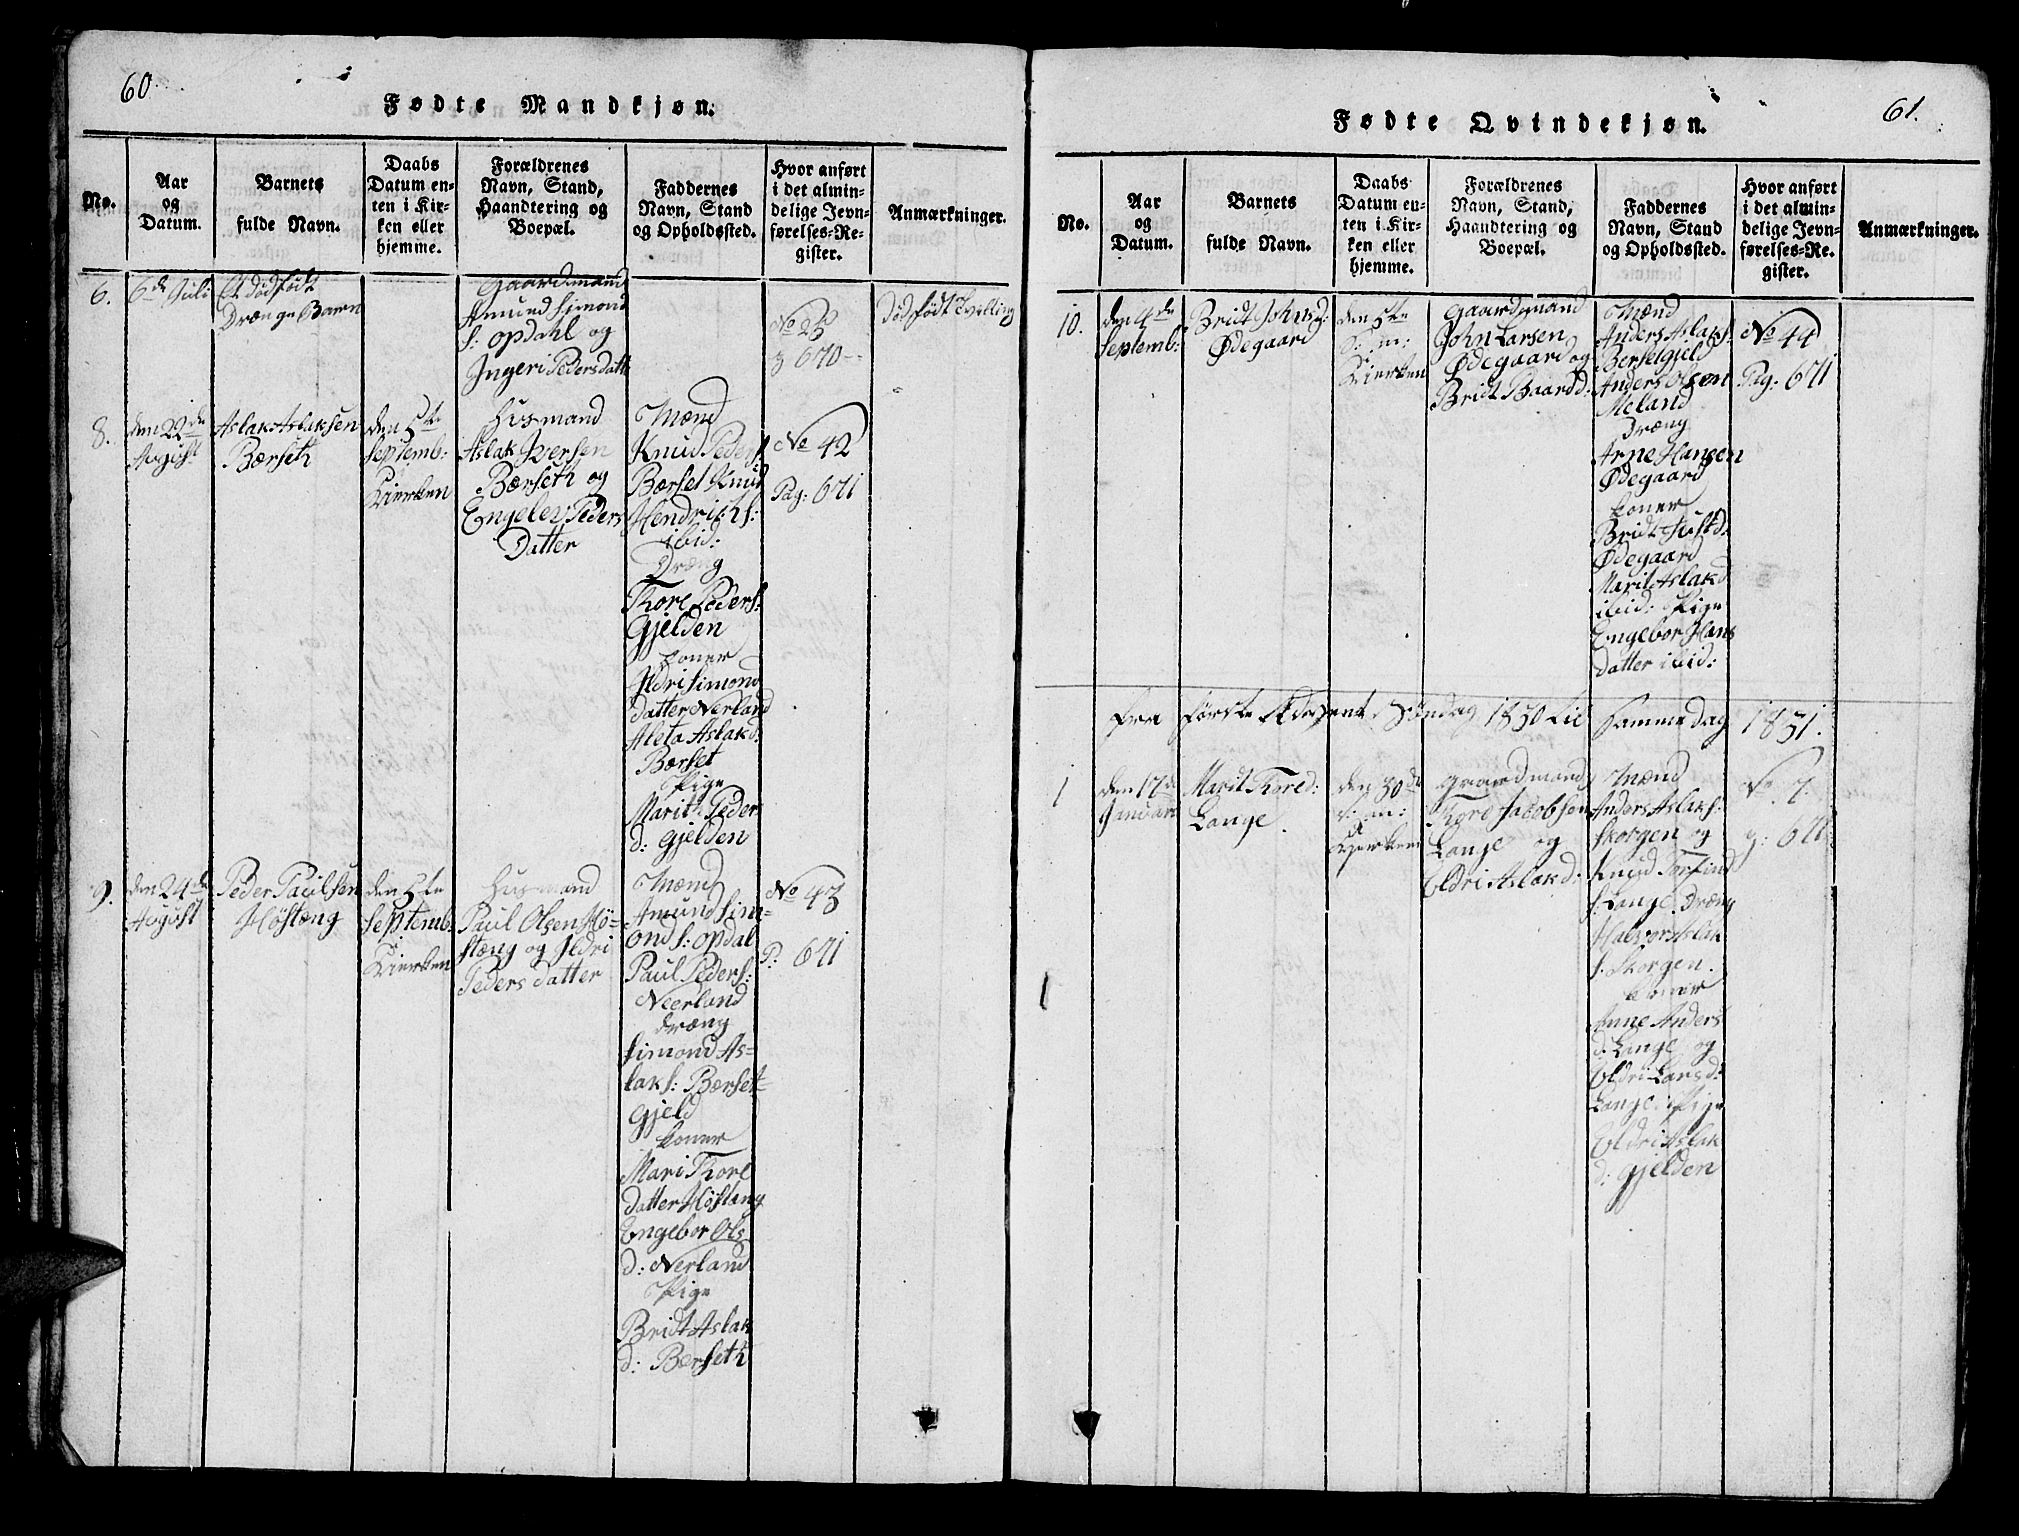 60.
Fødte Mandkjøn.
No.
Aar
og
Datum.
Barnets
fulde Navn.
Daabs
Datum en-
ten i Kir-
ken eller
hjemme.
Forældrenes
Navn, Stand,
Haandtering og
Boepæl.
Faddernes
Navn, Stand
og Opholdssted.
Hvor anført
i det almin-
delige Jevn-
førelses-Re-
gister.
Anmærkninger.
6.
6de Juli
Et dødfødt
Drænge Barn
Gaardmand
Amund Simond
s: Opdahl og
Ingeri Pedersdatt
No 25
670
Dødfødt Tvilling
8.
den 22de
August
Aslak Aslaksen
Bærseth
den 5te
Septemb:
Kierken
Husmand
Aslak Iversen
Bærseth og
Engelev Peders
Datter
Mænd
Knud Peders:
Bærset Knud
Hendrichs:
ibid:
Dræng
Thore Peders:
Gjelden
koner
Ildri Simond
datter Nerland
Aleta Aslakd:
Bærset
Pige
Marith Peder
d: Gjelden
No 42
Pag: 671
9.
den 24de
August
Peder Paulsen
Høstæng
den 5te
Septemb:
Kierken
Husmand
Paul Olsen Hö-
stæng og Ildri
Peders datter
Mænd
Amund Sim-
ond s: Opdal
Paul Peders:
Neerland
dræng
Simond As-
laks: Bærset-
gjeld
koner
Mari Thore
datter Høstæng
Engebor Ols
d: Nerland
Pige
Bridt Aslak
d: Bærseth
No 43
P: 671
61.
Fødte Qvindekjøn.
No.
Aar
og
Datum.
Barnets
fulde Navn.
Daabs
Datum en-
ten i Kir-
ken eller
hjemme.
Forældrenes
Navn, Stand,
Haandtering og
Boepæl.
Faddernes
Navn, Stand
og Opholdssted.
Hvor anført
i det almin-
delige Jevn-
førelses-Re-
gister.
Anmærkninger.
10.
den 4de
Septemb:
Bridt Johnsd:
Ødegaard
den 5te
s: m:
Kierken
Gaardmand
John Larsen
Ødegaard og
Bridt Baardd:
Mænd
Anders Aslaks:
Berselgjeld
Anders Olsen
Meland
Dræng
Arne Hansen
Ødegaard
koner
Bridt Justd:
Ødegaard
Marit Aslakd
ibid: Pige
Engebor Hans
datter ibid:
No 44
Pag: 671
fra første Advent Søndag 1830 til samme dag 1831.
1
den 17de
Januari
Marit Thored:
Lange
den 30de
s: m:
Kjerken
gaardmand
Thore Jacobsen
Lange og
Eldri Aslakd:
Mænd
Anders Aslaks:
Skorgen og
Knud Torfind
s: Lange. Dræng
Halvor Aslak
s: Skorgen.
koner
Anne Anders
d: Lange og
Eldri Larsd:
Lange. Pige
Eldri Aslak
d: Gjelden
No 7.
g: 671